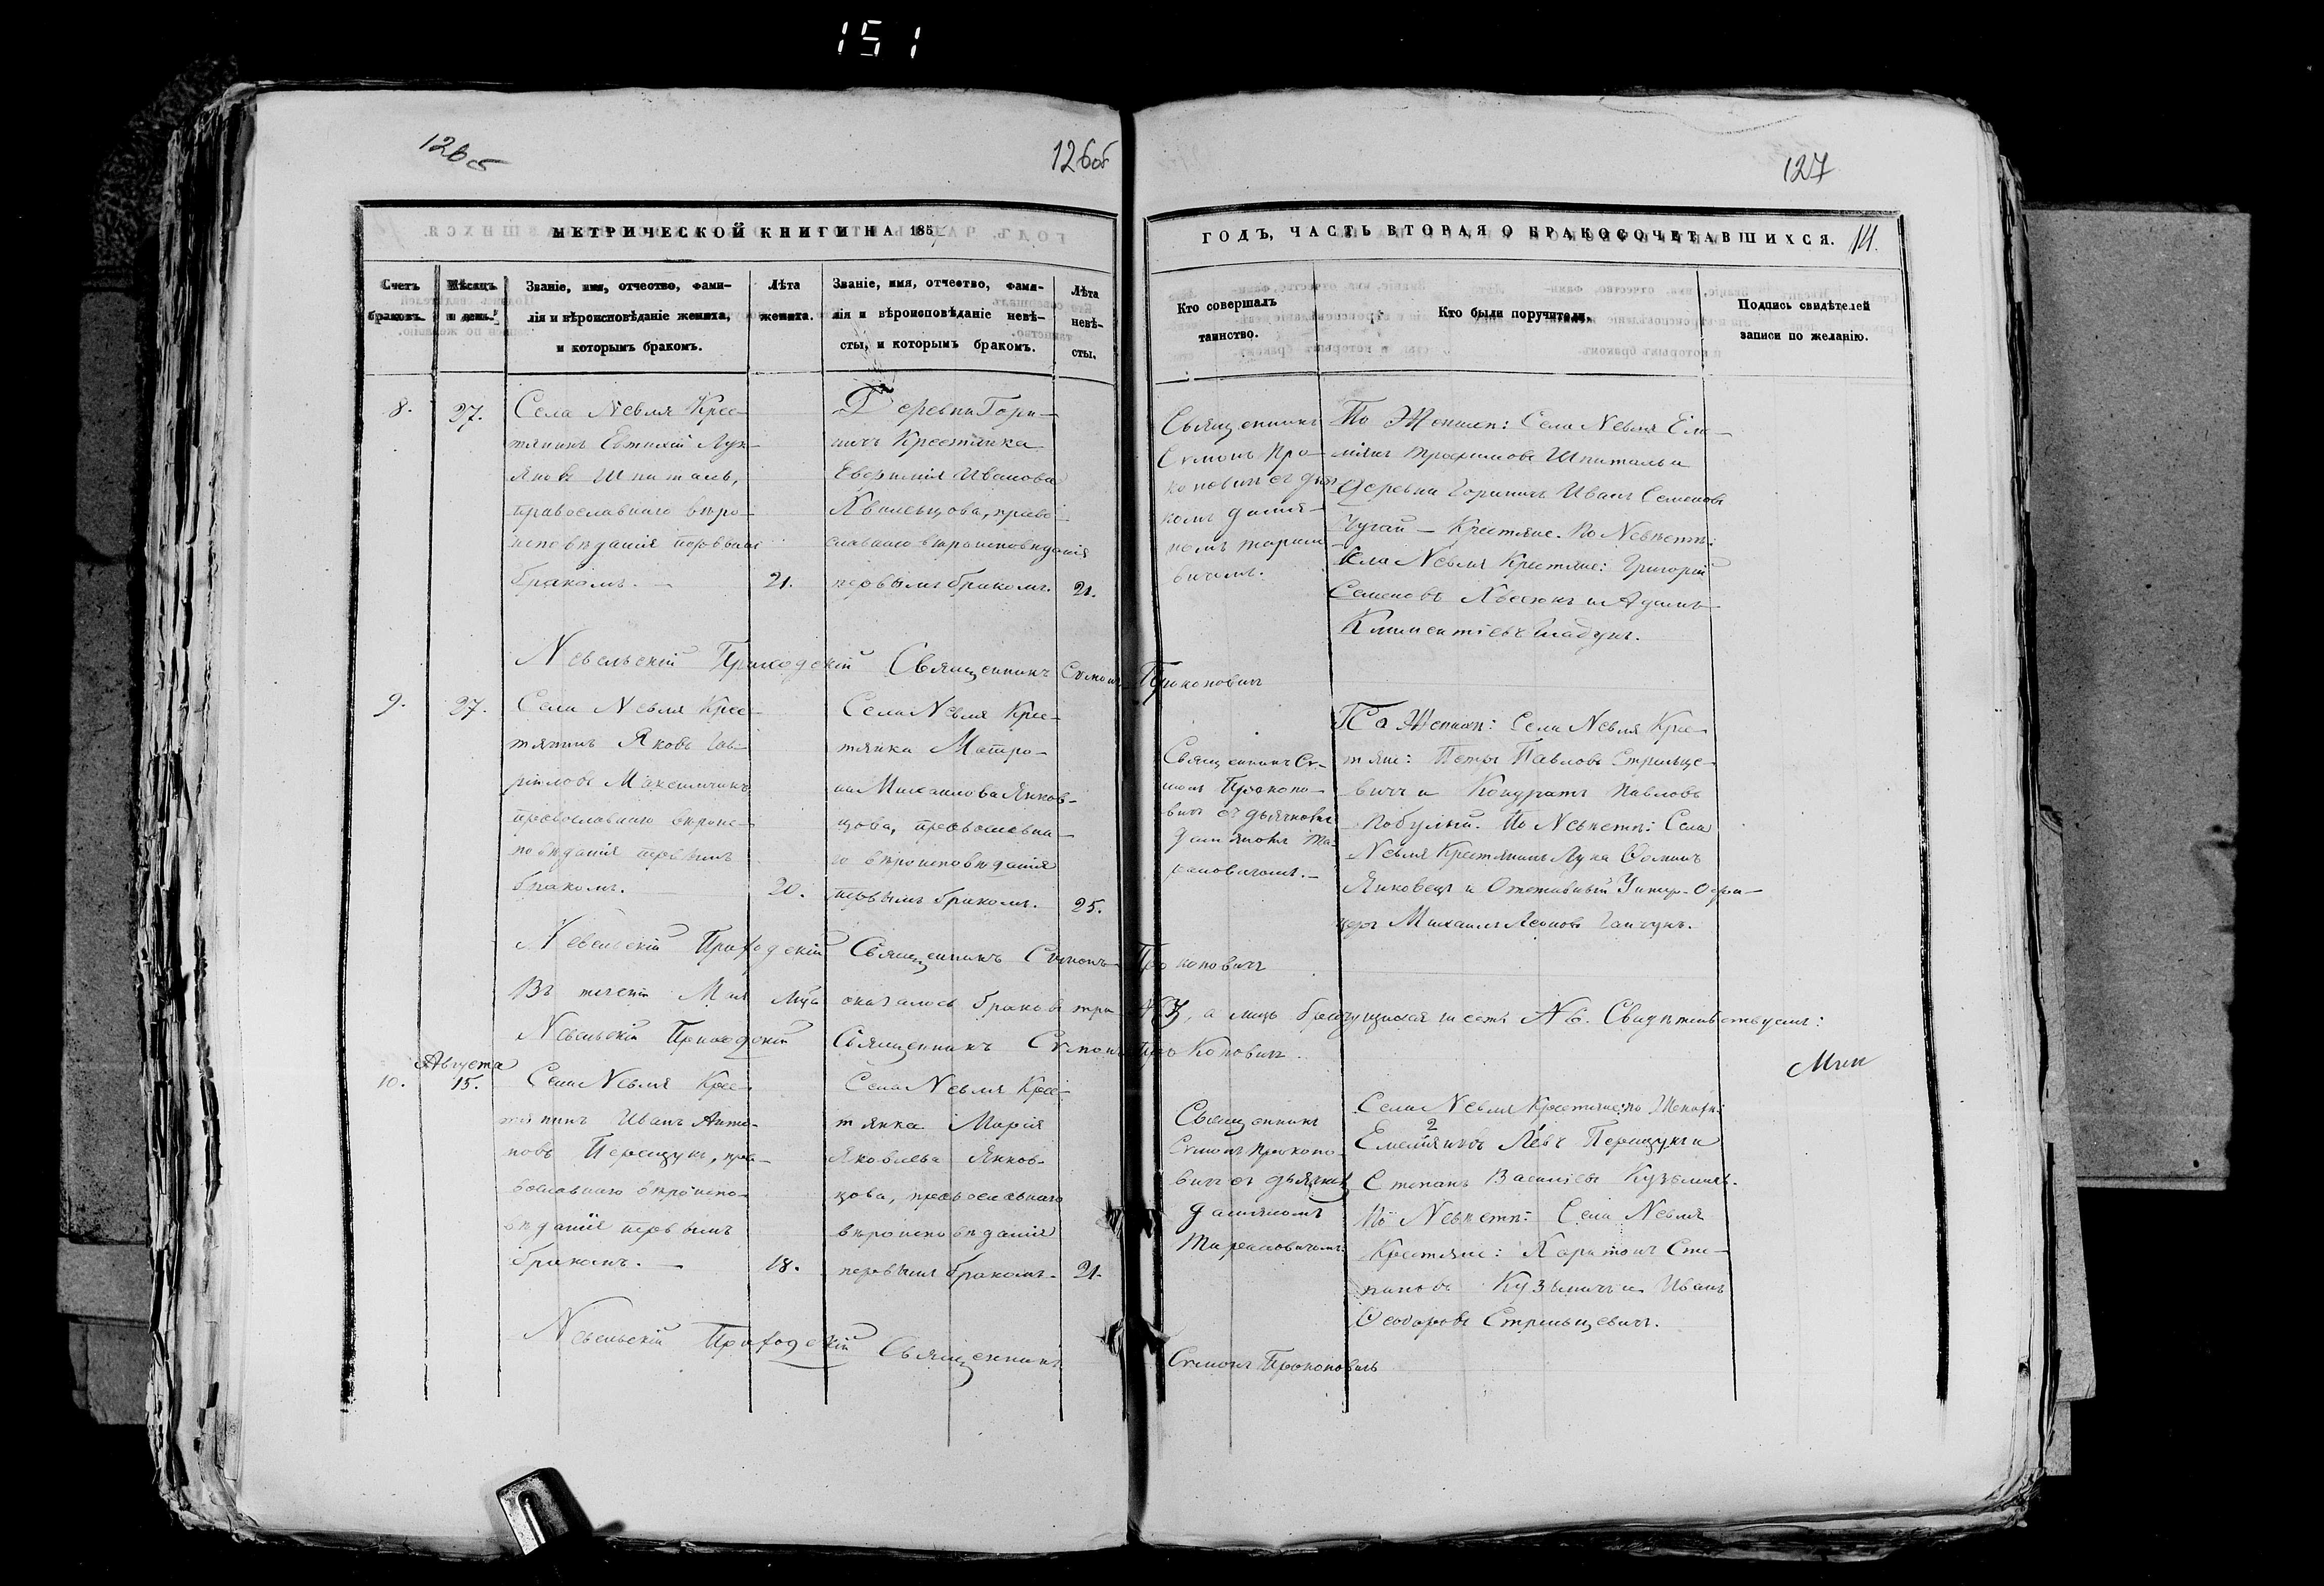 151
126об
126об
127
МЕТРИЧЕСКОЙ КНИГИ НА 185
ГОДЪ, ЧАСТЬ ВТОРАЯ О БРАКОСОЧЕТАВШИХСЯ.
Счетъ браковъ.
Мѣсяцъ и день.
Званіе, имя, отчество, фами-
лія и вѣроисповѣданіе жениха,
и которымъ бракомъ.
Лѣта
жениха.
Званіе, имя, отчество, фами-
лія и вѣроисповѣданіе невѣ-
сты, и которымъ бракомъ.
Лѣта
невѣ-
сты.
Кто совершалъ
таинство.
Кто были поручители.
Подпись свидѣтелей
записи по желанію.
8.
27.
Села Невля Крес-
тянинъ Евтихій Лук-
яновъ Шпиталь,
православнаго вѣро-
исповѣданія первымъ
бракомъ.
21.
Деревни Гори-
ничъ Крестянка
Евфимія Иванова
православнаго вѣроисповѣданія
первымъ бракомъ.
21.
Священникъ
Сѵмонъ Про-
коповичъ съ дья
комъ Даміа-
номъ Тарано
вичомъ.
По Женихѣ: Села Невля Еме-
ліянъ Трофимовъ Шпиталь и
Деревни Гориничъ Иванъ Семеновъ
Чугай - Крестяне. По Невѣстѣ:
Села Невля Крестяне: Григорій
Семеновъ и Адамъ
Климентіевъ
Невельскій Приходскій Священникъ Сѵмонъ Прокоповичъ
9.
27.
Села Невля Крес-
тянинъ Яковъ Гав-
ріиловъ
православнаго вѣроис-
повѣданія первымъ
бракомъ.
20.
Села Невля Крес-
тянка Матро-
на Михаилова Янков-
цова, православна-
го вѣроисповѣданія
первымъ бракомъ.
25.
Священникъ Сѵ-
монъ Прокопо-
вичъ съ дьячкомъ
Даміяномъ Та-
рановичомъ.
По Женихѣ: Села Невля Крес-
тяне: Петръ Павловъ Стрильце-
вичъ и Кондратъ Павловъ
По Невѣстѣ: Села
Невля Крестянинъ Лука Фоминъ
Янковецъ и Отставный Унтер-Офи-
церъ Михаилъ Леоновъ
Невельскій Приходскій Священникъ Сѵмонъ Прокоповичъ
Въ теченіи Мая мца оказалось браковъ три №3, а лицъ брачущихся шесть №6. Свидѣтельствуемъ:
Невельскій Приходскій Священникъ Сѵмонъ Прокоповичъ.
Августа
10.
15.
Села Невля Крес-
тянинъ Иванъ Анто-
новъ Перещукъ, пра-
вославнаго вѣроиспо-
вѣданія первымъ
бракомъ.
18.
Села Невля Крес-
тянка Марія
Яковлева Янков-
цова, православнаго
вѣроисповѣданія
первымъ бракомъ.
21.
Священникъ
Сѵмонъ Прокопо-
вичъ съ дьячкомъ
Даміяномъ
Тарановичомъ.
Села Невля Крестяне: по Женихѣ:
2
Емелияновъ Левъ Перещукъ и
Степанъ Василіевъ Кузьмичъ.
По Невѣстѣ: Села Невля
Крестяне: Харитонъ Сте-
пановъ Кузьмичъ и Иванъ
Феодоровъ Стрильцевичъ.
Невельскій Приходскій Священникъ
Сѵмонъ Прокоповичъ